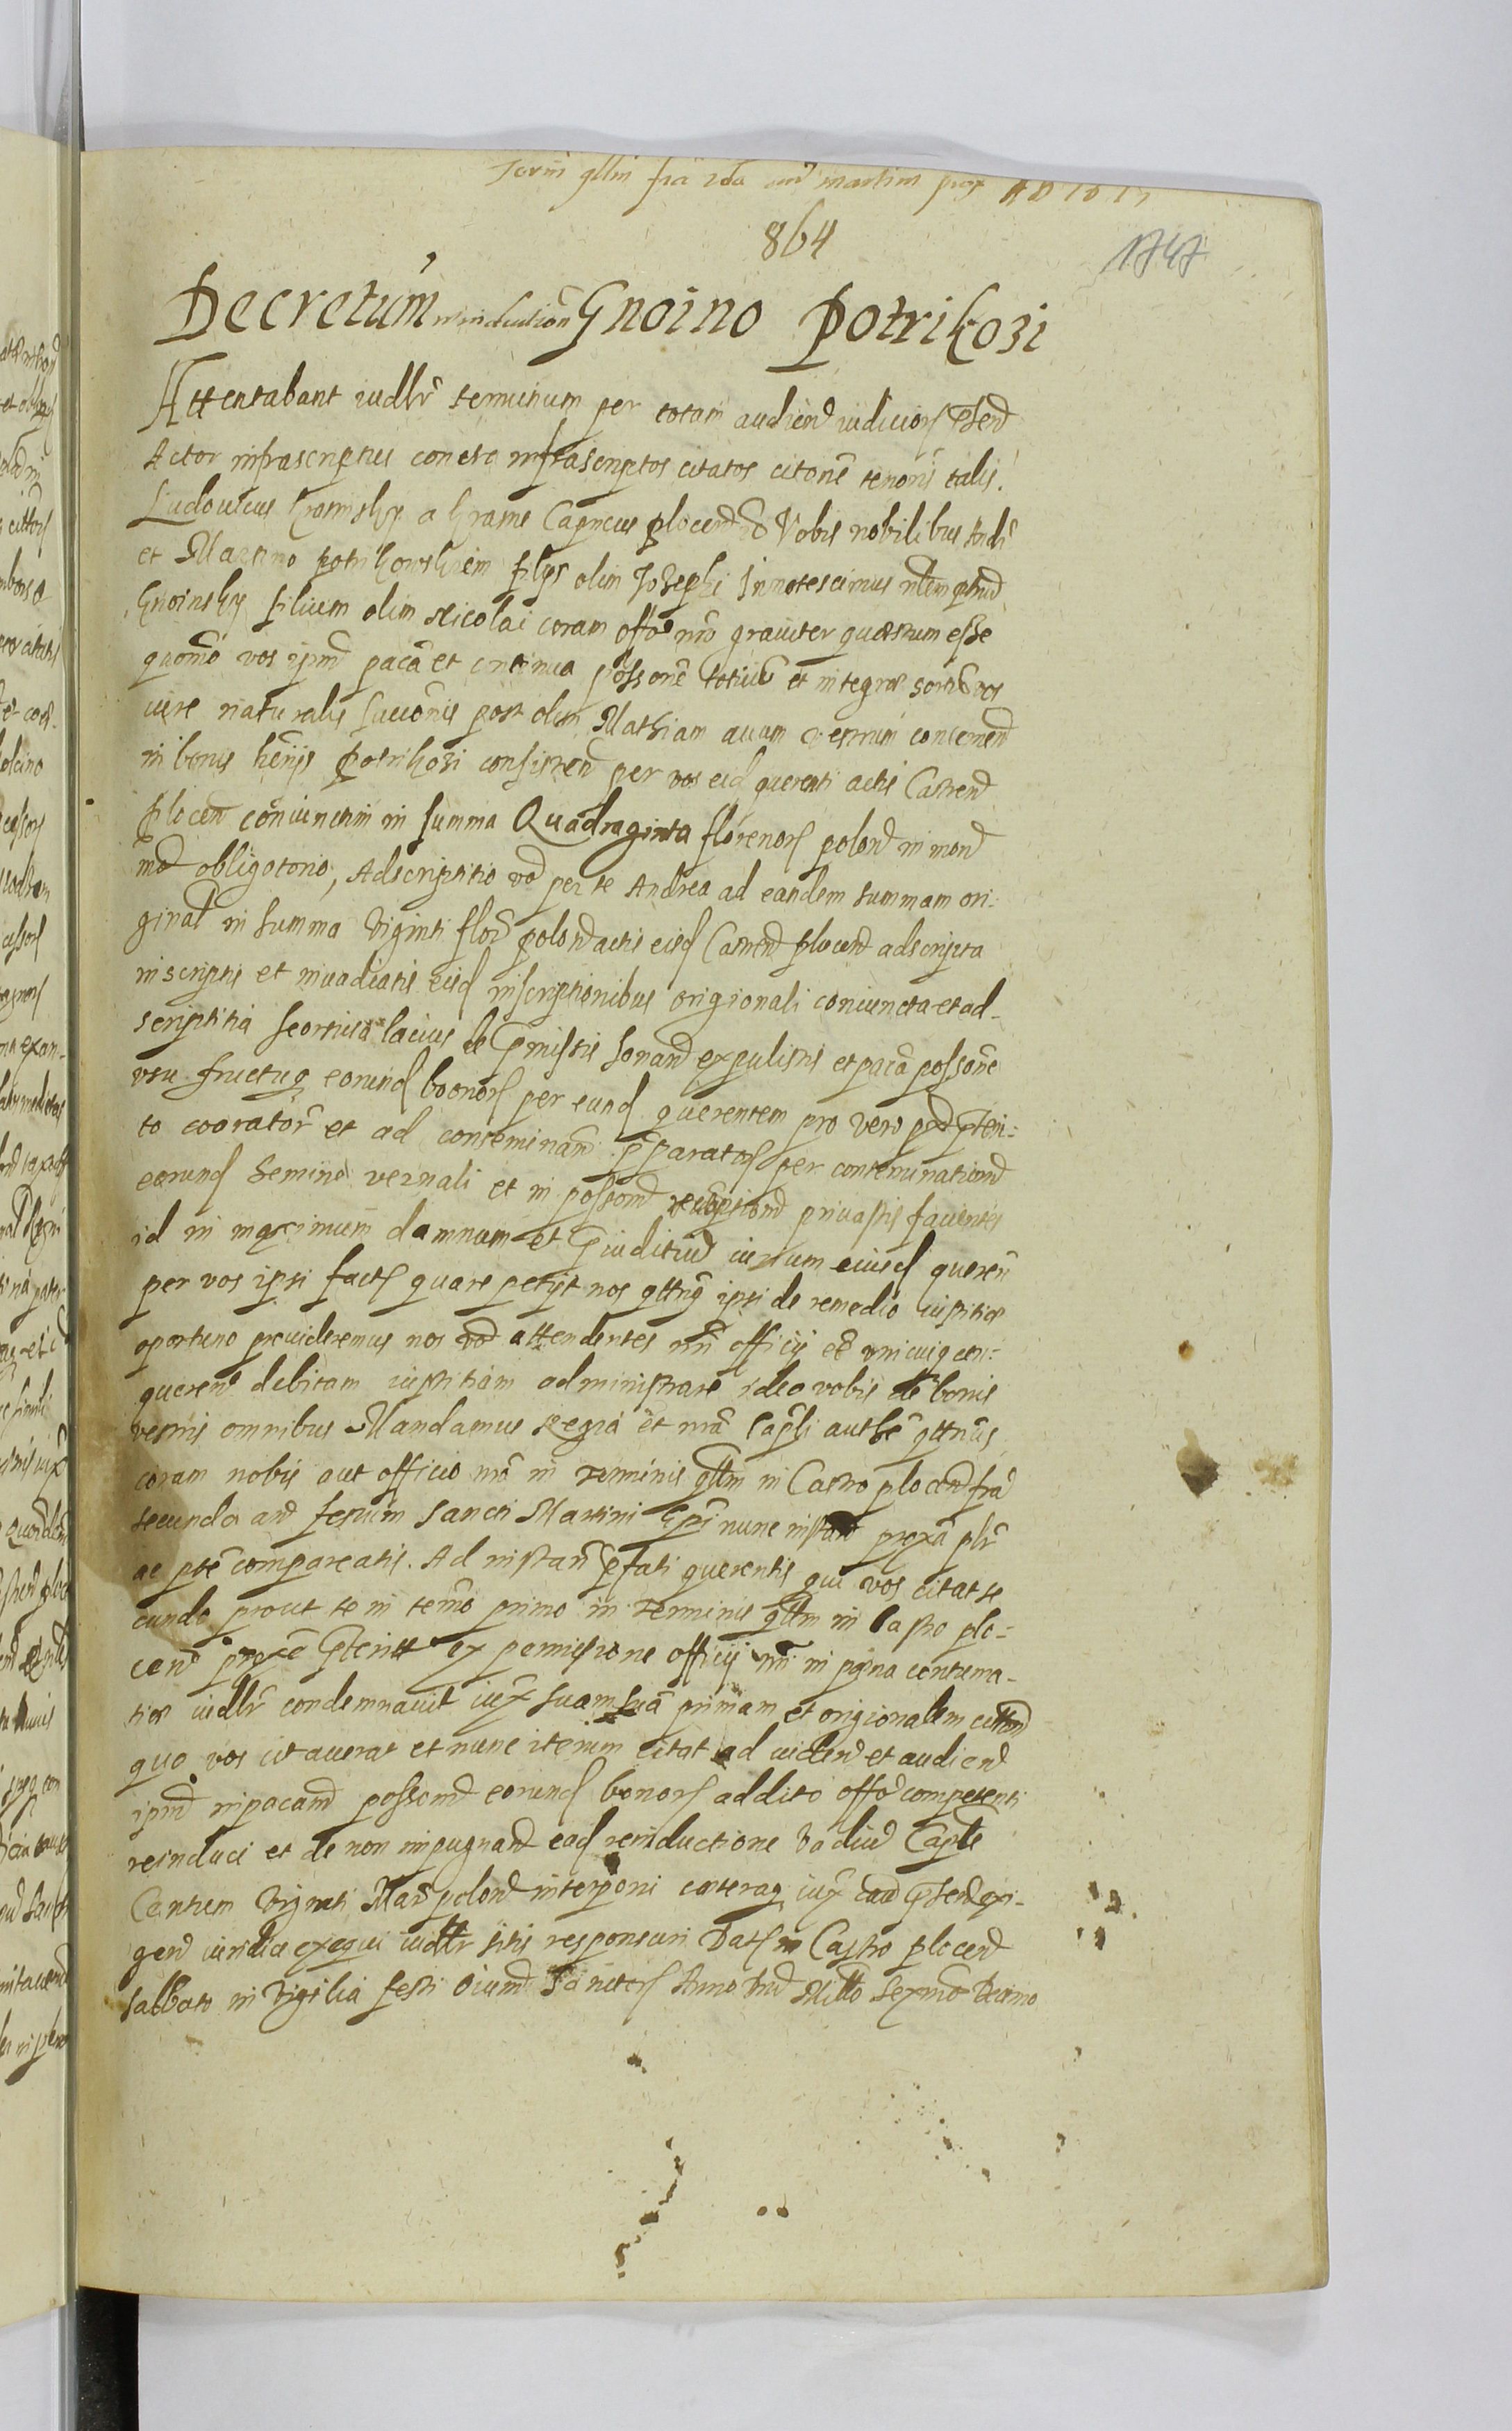 Termi gllm fra 2da an martini prox A D 16 17
864
1747
Decretum reinduction Gnoino Potrikozi
Attentabant iudlr terminum per totam audien iudicior phen
Actor infrascriptus contra infrascriptos citatos citone tenoris talis.
Ludovicus Krasinsky a Krasne Capneus plocen Vobis nobilibus Andr
et Martino potrikowskiem filys olim Josephi Innotescimus
Gnoinsky filium olim Nicolai coram offo nro graviter quæstum esse
quomo vos ipm paca et continua possone totius et integræ sortis vos
iure naturalis succonis post olim Mathiam avum vestrum concernen
in bonis herijs Potrikozi consisten per vos eid querenti actis Castren
plocen coniunctim in summa Quadraginta florenor polon in mon
mod obligotorio, Adscriptitio vo per te Andrea ad eandem summam ori-
ginal in summa Viginti flor polon actis eisd Castren plocen adscripta
inscriptis et invadiatis eisd inscriptionibus origionali coniuncta et ad-
scriptitia seorsiva lacius de pmissis sonan expulistis et paca possone
usu fructuq eorund boonor per eund querentem pro vero pteri-
to coorator et ad conseminan pparator per conseminationem
eorund semine vernali et in posson privastis facientes
id in maximum damnum et piuditiu iurium eiusd queren
per vos ipsi fact quare petyt nos qttnq ipsi de remedio iustitiæ
oportuno provideremus nos vo attendentes nri officij ee unicuiq con-
queren debitam iustitiam administrare ideo vobis de bonis
vestris omnibus Mandamus Regia et nra Capli authe qttnus
coram nobis aut officio nro in Terminis gllm in Castro plocen fra
secunda an festum Sancti Martini Epi nunc instan proxa plr
ac pte compareatis. Ad instan pfati querentis qui vos citat se
cundo prout te in termo primo in Terminis gllm in Castro plo-
cen proxe pterit ex permissione officij nri in pæna contuma-
tiæ iudlr condemnavit iux suam sua primam et origionalem citton
quo vos citaverat et nunc iterum citat ad viden et audien
ipm in pacam posson eorund bonor addito offo competenti
reinduci et de non impugnan ead reinductione Vadiu Caple
Centum Viginti Mar polon interponi cæteraq iux cau phen exi-
gen iuridica exequi iudlr sitis responsuri Dat in Castro plocen
sabbato in Vigilia festi Oium Sanctor Anno Dni Millo Sexmo Decimo